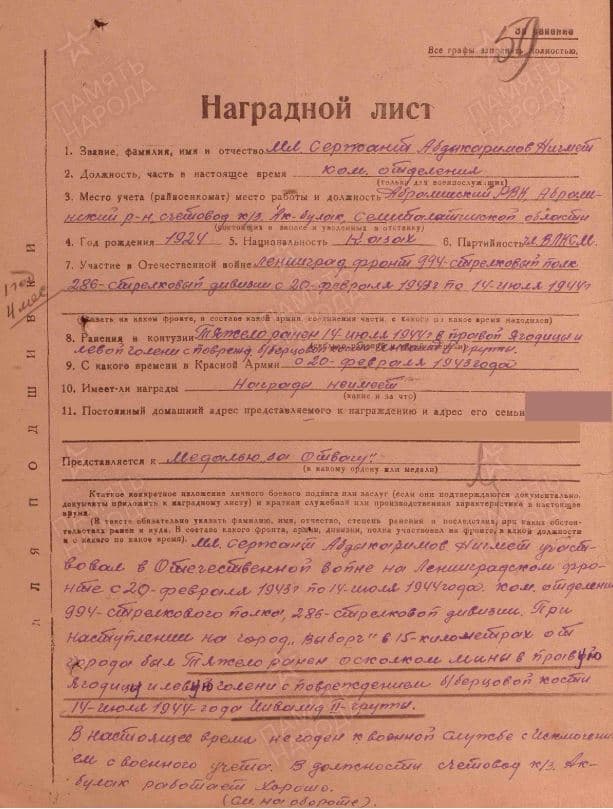 59
Все графы заполнять полностью.
Наградной лист
1. Звание, фамилия, имя и отчество Мл. Сержант Абдыкаримов Нигмет
2. Должность, часть в настоящее время ком. отделения
(только для военнослужащих)
3. Место учета (райвоенкомат) место работы и должность Абралинский РВК, Абралин-
ский р-н, счетовод к/з. Ак-булак, Семипалатинской области
(состоящих в запасе и уволенных в отставку)
4. Год рождения 1924 5. Национальность Казах 6. Партийность чл. ВЛКСМ.
7. Участие в Отечественной войне Ленинград фронт 994-стрелковый полк
286-стрелковый дивизии с 20-февраля 1943г по 14-июля 1944г
1 год
4 мес
(указать на каком фронте, в составе какой армии, соединения части, с какого по какое время находился)
8. Ранения и контузии Тяжело ранен 14-июля 1944г в правой ягодицы и
левой голени с поврежд б/берцовой кости Инвалид II группы.
9. С какого времени в Красной Армии с 20-февраля 1943 года
10. Имеет-ли награды Награды неимеет
(какие и за что)
11. Постоянный домашний адрес представляемого к награждению и адрес его семьи
Представляется к Медалью „за Отвагу".
(к какому ордену или медали)
Краткое конкретное изложение личного боевого подвига или заслуг (если они подтверждаются документально,
документы приложить к наградному листу) и краткая служебная или производственная характеристика в настоящее
время.
(В тексте обязательно указать фамилию, имя, отчество, степень ранения и последствия, при каких обстоя-
тельствах ранен и куда. В составе какого фронта, армии, дивизии, полка участвовал на фронте, в какой должности
и с какого по какое время).
Мл. Сержант Абдыкаримов Нигмет участ-
вовал в Отечественной войне на Ленинградском фро-
нте с 20-февраля 1943г по 14-июля 1944 года. ком. отделении
994-стрелкового полка, 286-стрелковой дивизии. При
наступлении на город „Выборг" в 15-километрах от
города был Тяжело ранен осколком мины в правую
ягодицу и левую голени с повреждением б/берцовой кости
14-июля 1944-года Инвалид II-группы.
В настоящее время не годен к военной службе с исключени
ем с военного учета. В должности счетовод к/з. Ак-
булак работает хорошо.
(См на обороте).
ДЛЯ ПОДШИВКИ
ПАМЯТЬ НАРОДА